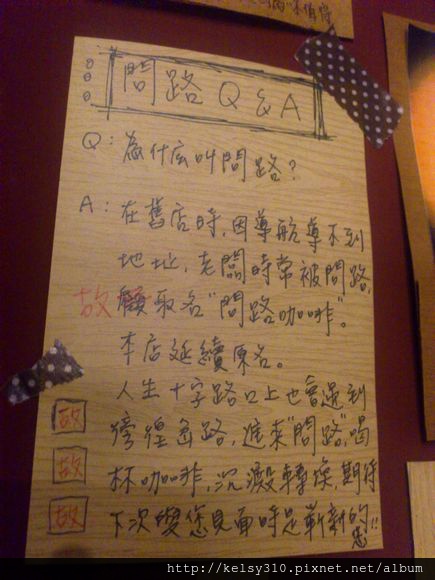 問路 Q & A
Q：為什么叫問路？
A：在舊店時，因導航導不到
地址，老闆時常被問路，
故 取名"問路咖啡"。
本店延續原名。
人生十字路口上也會遇到
徬徨岔路，進來"問路"，喝
故
杯咖啡，沉澱轉換，期待
故
下次與您見面時是嶄新的您!!
故
http://kelsy310.pixnet.net/album